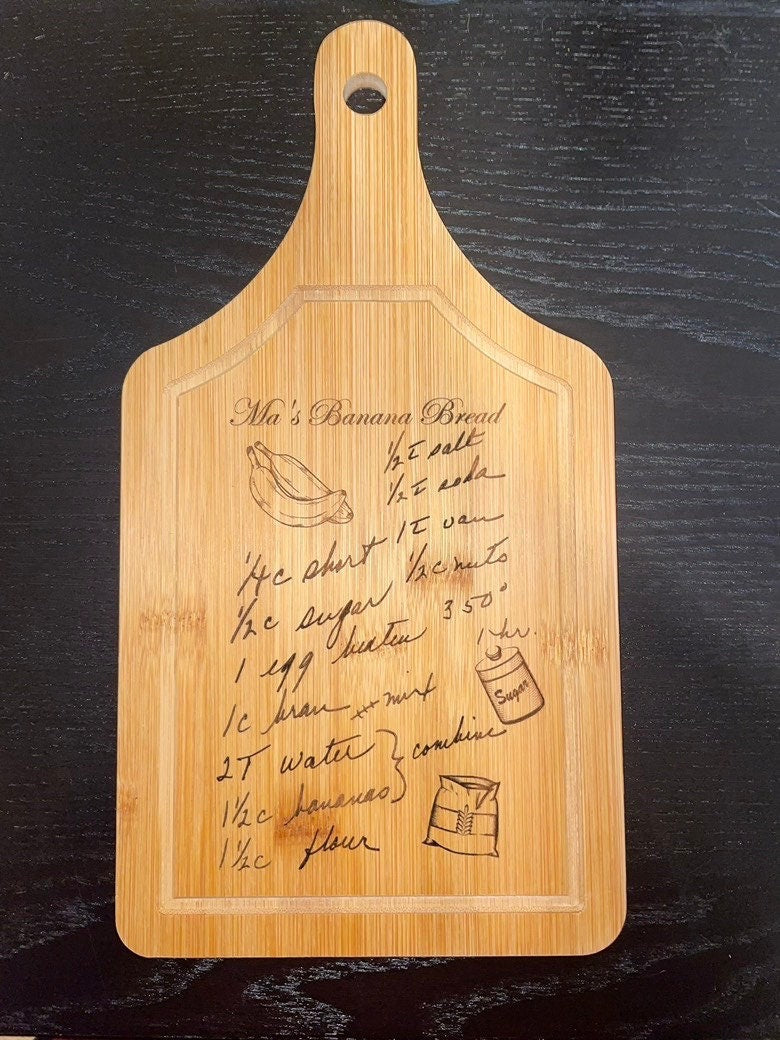 Ma's Banana Bread
1/2 t salt
1/2 t soda
1/4 c short 1 t van
1/2 c sugar 1/2 c nuts
1 egg beaten 350°
1 hr.
1 c bran mix
Sugar
2 T water } combine
1 1/2 c bananas
1 1/2 c flour